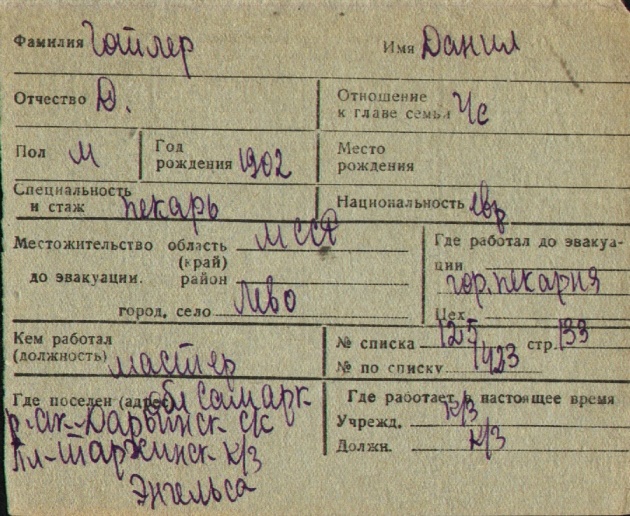 Фамилия Гойлер Имя Данил
Отчество Д. Отношение к главе семьи Чс
Пол М Год рождения 1902 Место рождения
Специальность и стаж пекарь Национальность евр
Местожительство область МССР Где работал до эвакуа-
(край) ции
до эвакуации. район гор. пекарня
город, село Лево Цех
Кем работал № списка 125 стр. 133
(должность) мастер № по списку 1423
Где поселен (адрес) обл Самарк Где работает в настоящее время
р. Ак-Дарьинск с/с Учрежд. к/з
к/з Должн. к/з
Энгельса